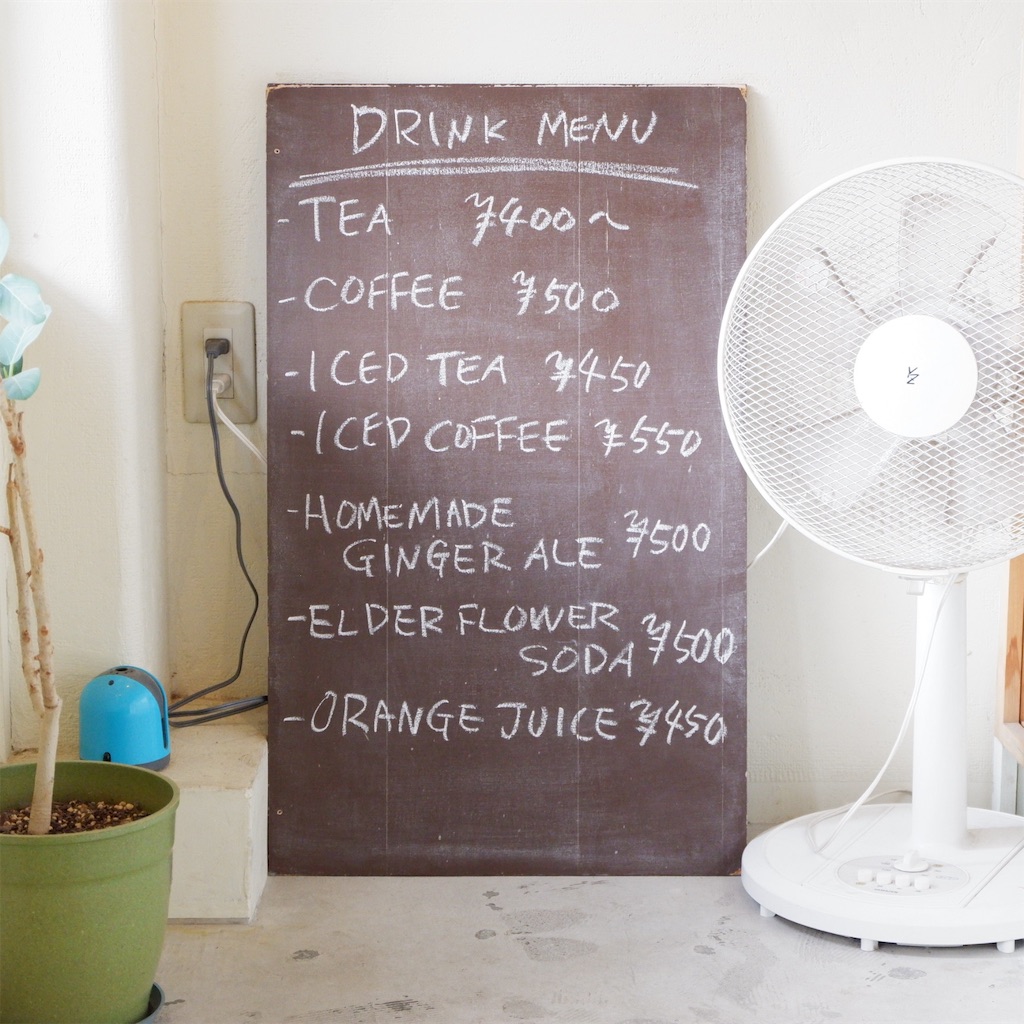 DRINK MENU
- TEA ¥400~
- COFFEE ¥500
- ICED TEA ¥450
- ICED COFFEE ¥550
- HOMEMADE
GINGER ALE ¥500
- ELDER FLOWER
SODA ¥500
- ORANGE JUICE ¥450